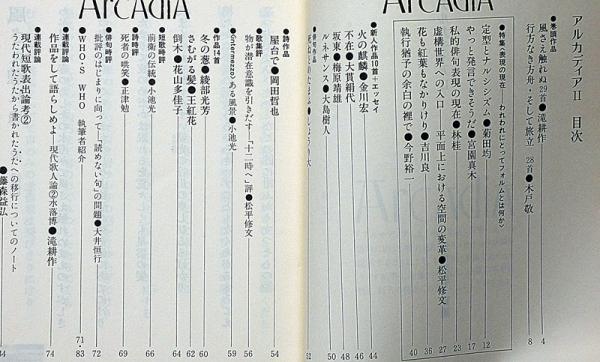 Arcadia
アルカディアⅡ 目次
●巻頭作品
風さえ触れぬ 29首●滝耕作 4
行方なき方児・そして旅立 28首●木戸敬 8
●特集〈表現の現在──われわれにとってフォルムとは何か〉
定型とナルシシズム●菊田均 12
やっと発言できそうだ●宮園真木 17
私的俳句表現の現在●林桂 23
虚構世界への入口 平面上における空間の変革●松平修文 27
花も紅葉もなかりけり●吉川良 36
執行猶予の余白の裡で●今野裕一 40
●新人作品10首+エッセイ
火の麒麟●金川宏 44
不在●大貫絹代 46
坂東●梅原靖雄 48
ルネサンス●大島樹人 50
●俳句作品
52
Arcadia
●詩作品
屋台で●岡田哲也 54
●歌集評
物が潜在意識を引きだす─「十二時へ」評●松平修文 56
●〈intermezzo〉ある風景●小池光 59
●作品14首
冬の卷●綾部光芳 60
さむがる髪●王紅花 62
倒木●花山多佳子 64
●短歌時評
前衛の伝統●小池光 66
●詩時評
死者の哄笑●正津勉 69
●俳句時評
批評のはじまりに向って─「読めない句」の問題●大井恒行 72
●WHO・S WHO 執筆者紹介 71・83
●連載評論
作品をして語らしめよ 現代歌人論②水落博●滝耕作 74
●連載評論
現代短歌表出論考②
うたわれたうたから書かれたうたへの移行についてのノート
●藤森益弘 84